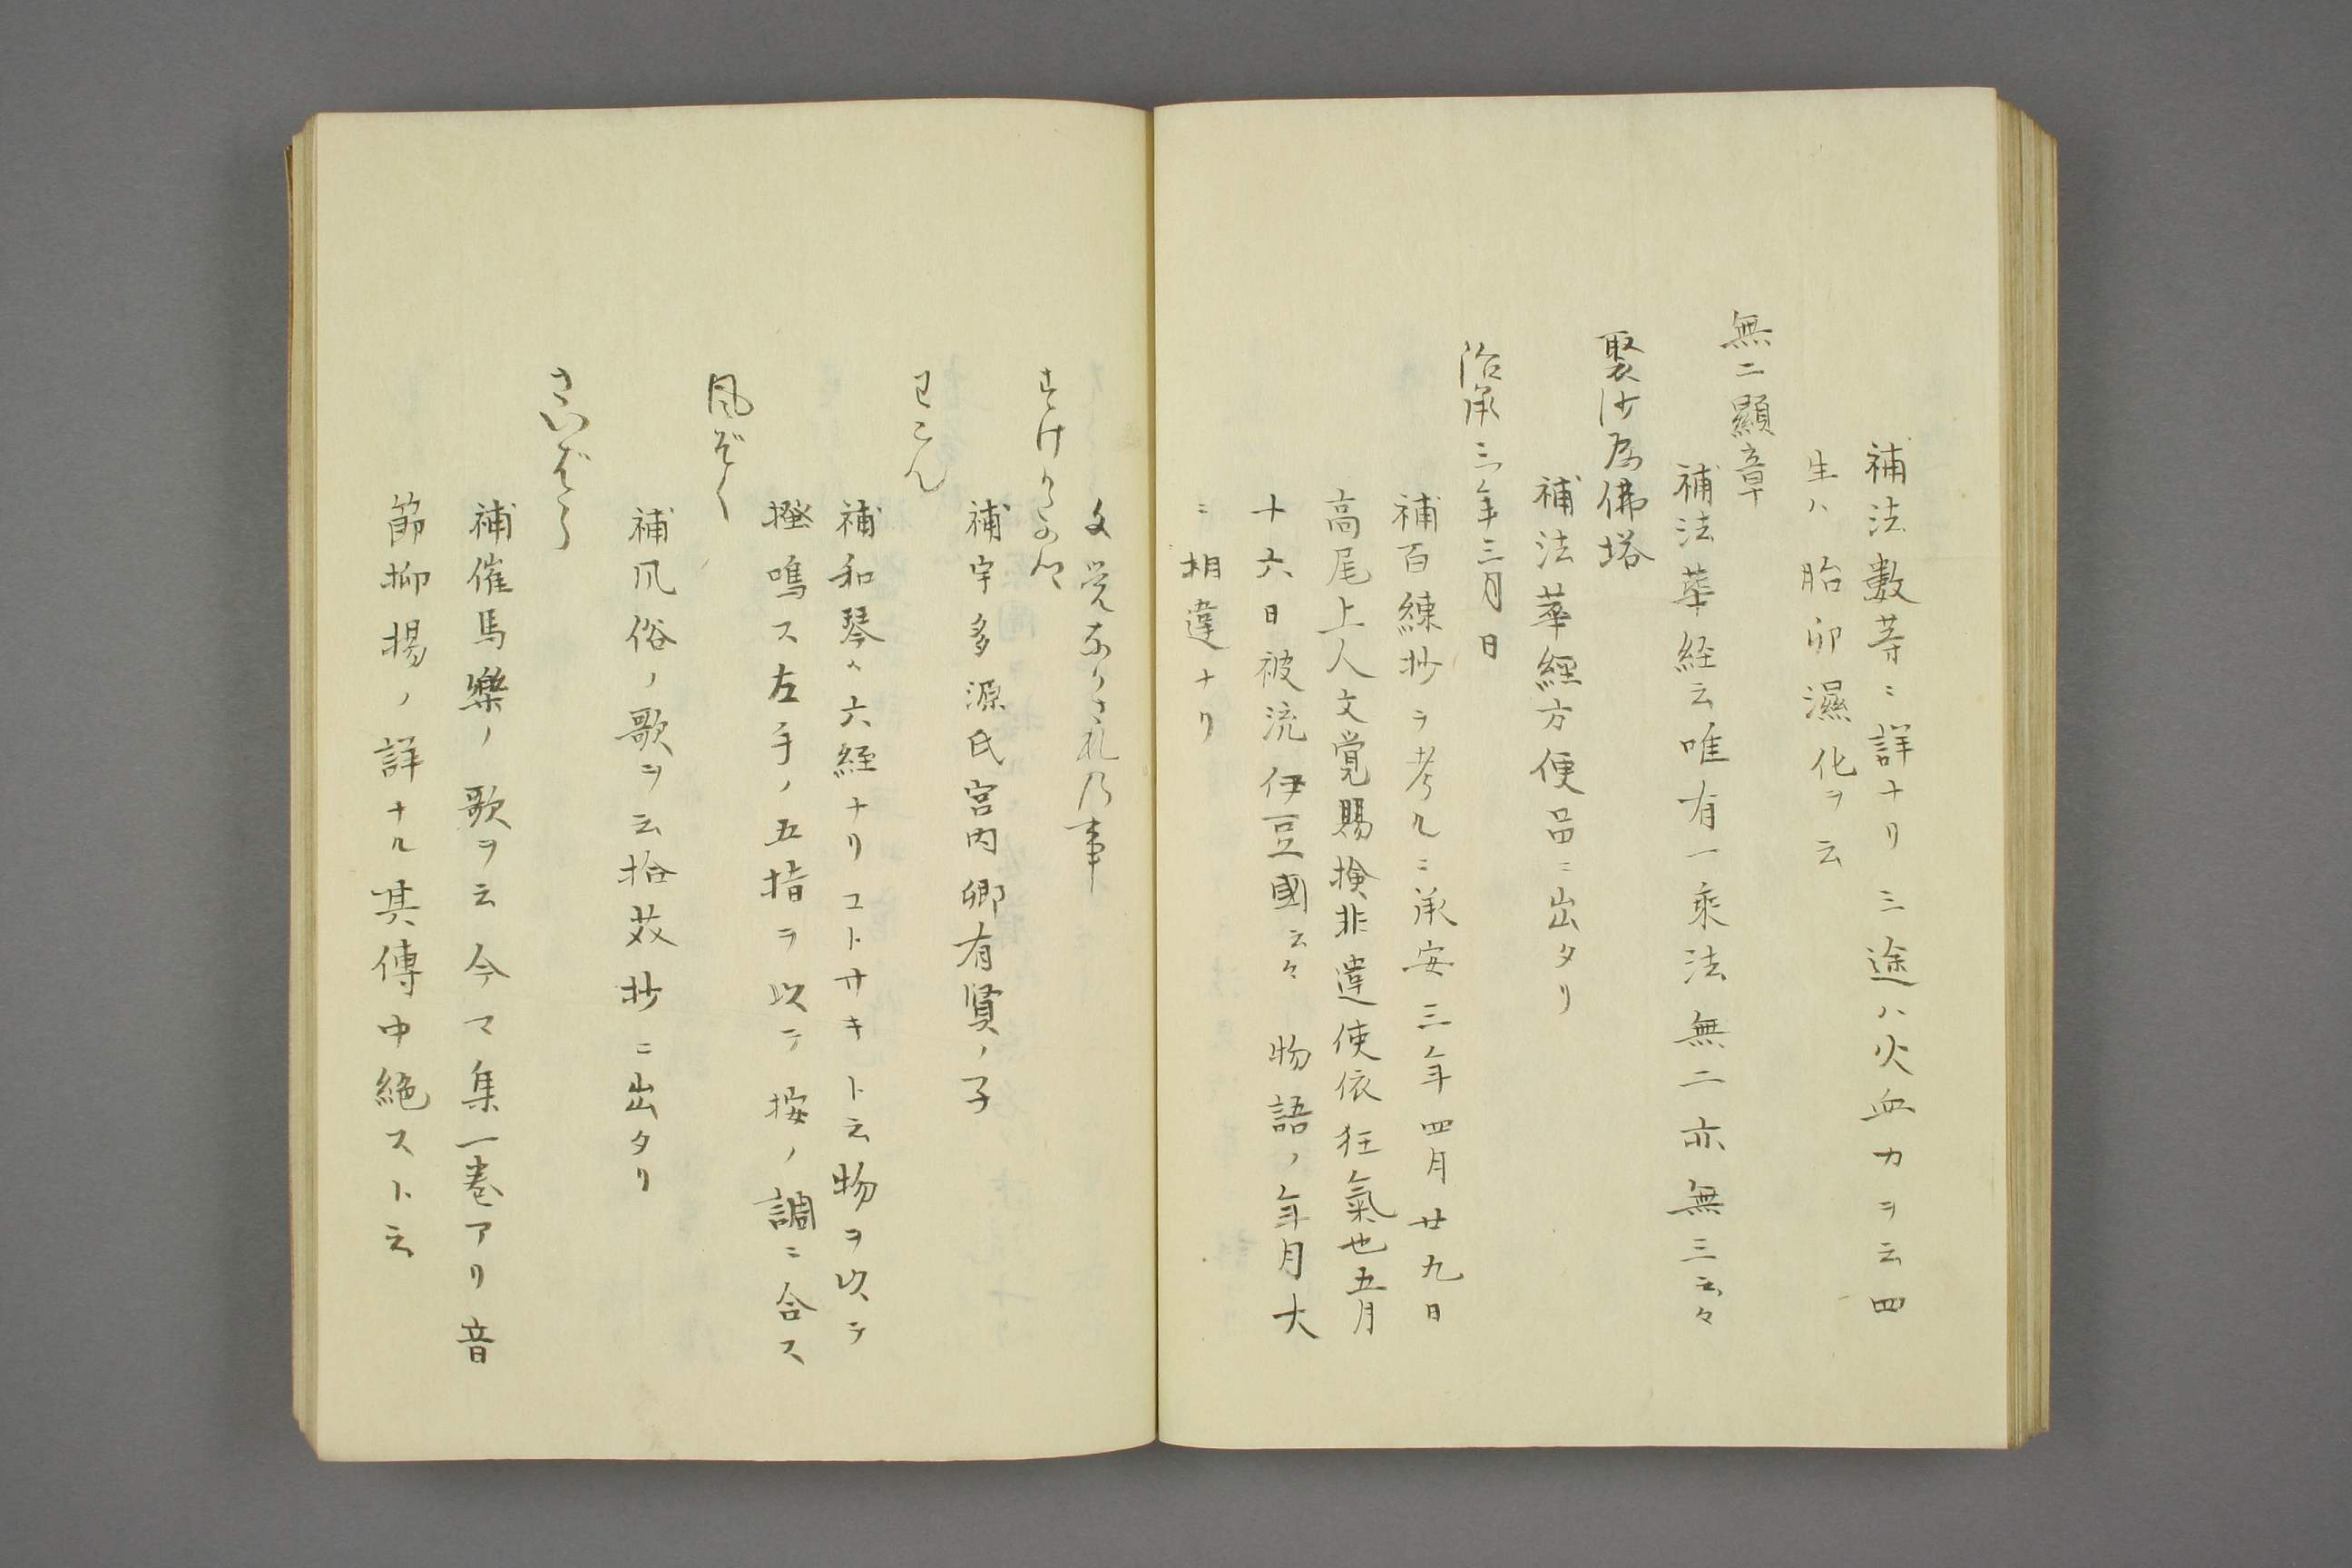 補法數等ニ詳ナリ三途ハ火血刀ヲ云四
生ハ胎卵濕化ヲ云
無二顯章
補法華経云唯有一乘法無二亦無三云々
聚沙為佛塔
補法華經方便品ニ出タリ
治承三年三月日
補百練抄ヲ考ルニ承安三年四月廿九日
高尾上人文覚賜検非違使依狂氣也五月
十六日被流伊豆國云々物語ノ年月大
ニ相違ナリ
文覚ながされの事
すけかたの
補宇多源氏宮内卿有賢ノ子
わこん
補和琴ハ六絃ナリコトサキト云物ヲ以テ
撥鳴ス左手ノ五指ヲ以テ按ノ調ニ合ス
風ぞく
補风俗ノ歌ヲ云拾芥抄ニ出タリ
さいばら
補催馬樂ノ歌ヲ云今マ集一巻アリ音
節抑揚ノ詳ナル其傳中絶スト云